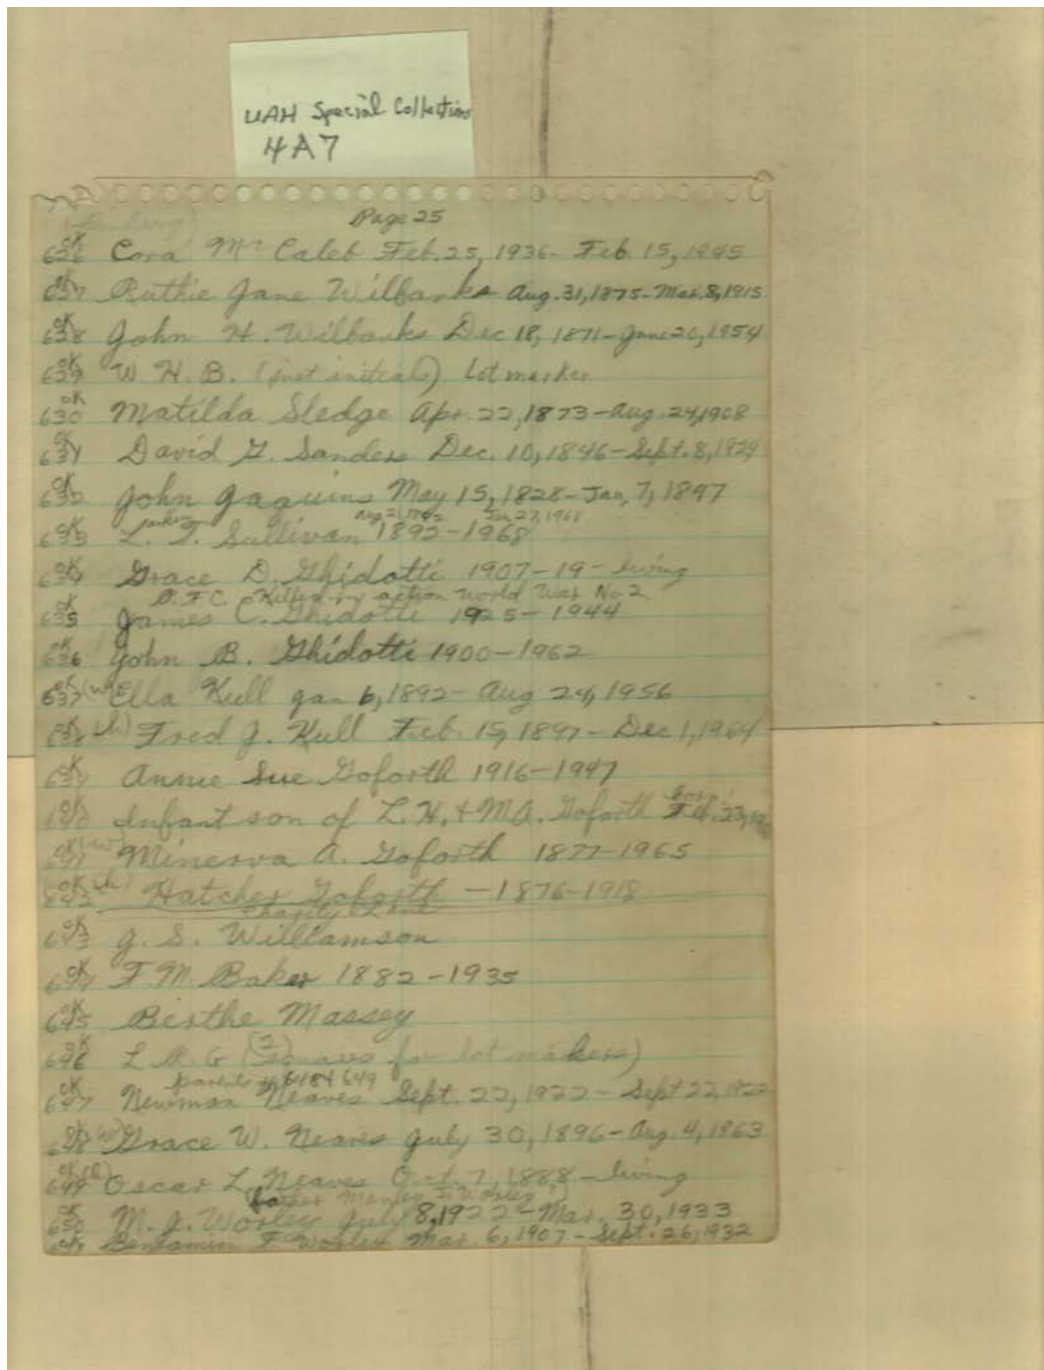 UAH Special Collections
4A7
Page 25
ok
636 Cora Mc Caleb Feb. 25, 1936 - Feb. 15, 1945
637 Ruthie Jane Wilbanks Aug. 31, 1875 - Mar. 8, 1915
ok
638 John H. Wilbanks Dec 18, 1871 - June 20, 1954
ok
639 W. H. B. (just initials) Lot marker
ok
630 Matilda Sledge Apr. 22, 1873 - Aug. 24, 1908
ok
631 David G. Sanders Dec. 10, 1846 - Sept. 8, 1924
ok
632 John Gaguins May 15, 1828 - Jan. 7, 1897
Aug 21, 1892 Jan 27, 1968
ok
633 L. T. Sullivan 1892 - 1968
ok
634 Grace D. Ghidotti 1907 - 19 - living
P.F.C. Killed in action World War No 2
ok
635 James C. Ghidotti 1925 - 1944
ok
636 John B. Ghidotti 1900 - 1962
ok
637 (w) Ella Kull Jan 6, 1892 - Aug 24, 1956
ok
638 (h) Fred J. Kull Feb. 15, 1897 - Dec 1, 1964
ok
639 Annie Sue Goforth 1916 - 1947
ok
640 Infant son of L. H. & M A. Goforth Feb. 23,
ok (w)
641 Minerva A. Goforth 1877 - 1965
ok (h)
Hatcher Goforth - 1876 - 1918
Charity Lane
ok
643 J. S. Williamson
ok
644 F. M. Baker 1882 - 1935
ok
645 Berthe Massey
ok
646 L R G (2) squares for lot makers)
parents is 648 & 649
ok
647 Newman Neaves Sept. 22, 1922 - Sept 22, 1922
ok
648 (w) Grace W. Neaves July 30, 1896 - Aug. 4, 1963
ok
649 Oscar L. Neaves Oct. 7, 1888 - living
ok
650 M. J. Worley July 8, 1922 - Mar. 30, 1933
Benjamin F. Worley Mar. 6, 1907 - Sept. 26, 1932